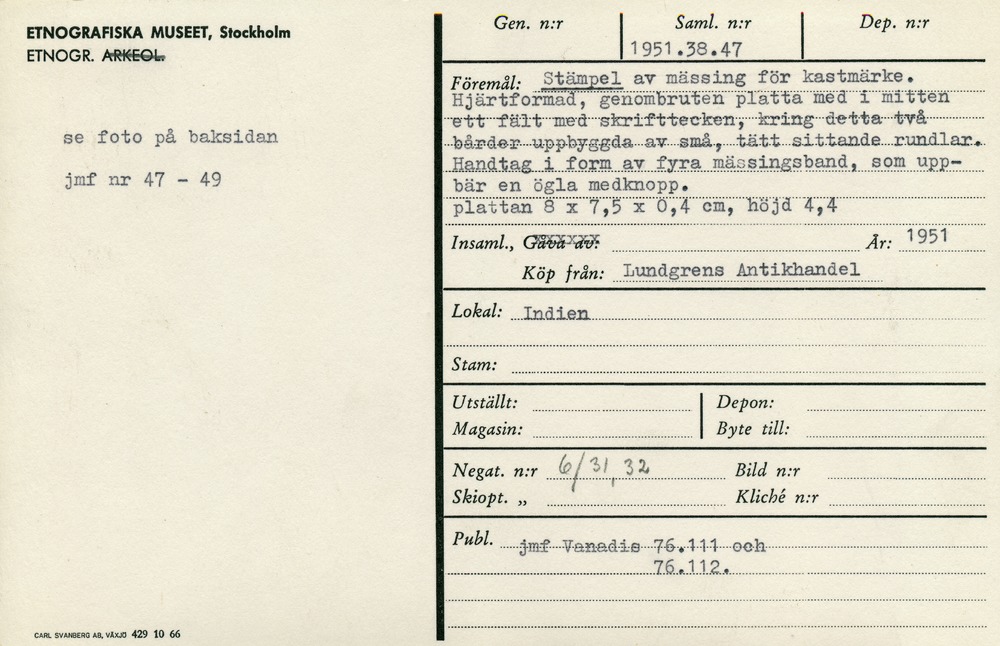 ETNOGRAFISKA MUSEET, Stockholm
ETNOGR. ARKEOL.
se foto på baksidan
jmf nr 47 - 49
CARL SVANBERG AB, VÄXJÖ 429 10 66
Gen. n:r
Saml. n:r
1951.38.47
Dep. n:r
Föremål: Stämpel av mässing för kastmärke.
Hjärtformad, genombruten platta med i mitten
ett fält med skrifttecken, kring detta två
bårder uppbyggda av små, tätt sittande rundlar.
Handtag i form av fyra mässingsband, som upp-
bär en ögla medknopp.
plattan 8 x 7,5 x 0,4 cm, höjd 4,4
Insaml., Gåva av: År: 1951
Köp från: Lundgrens Antikhandel
Lokal: Indien
Stam:
Utställt: Depon:
Magasin: Byte till:
Negat. n:r 6/31, 32 Bild n:r
Skiopt. „ Kliché n:r
Publ. jmf Vanadis 76.111 och
76.112.